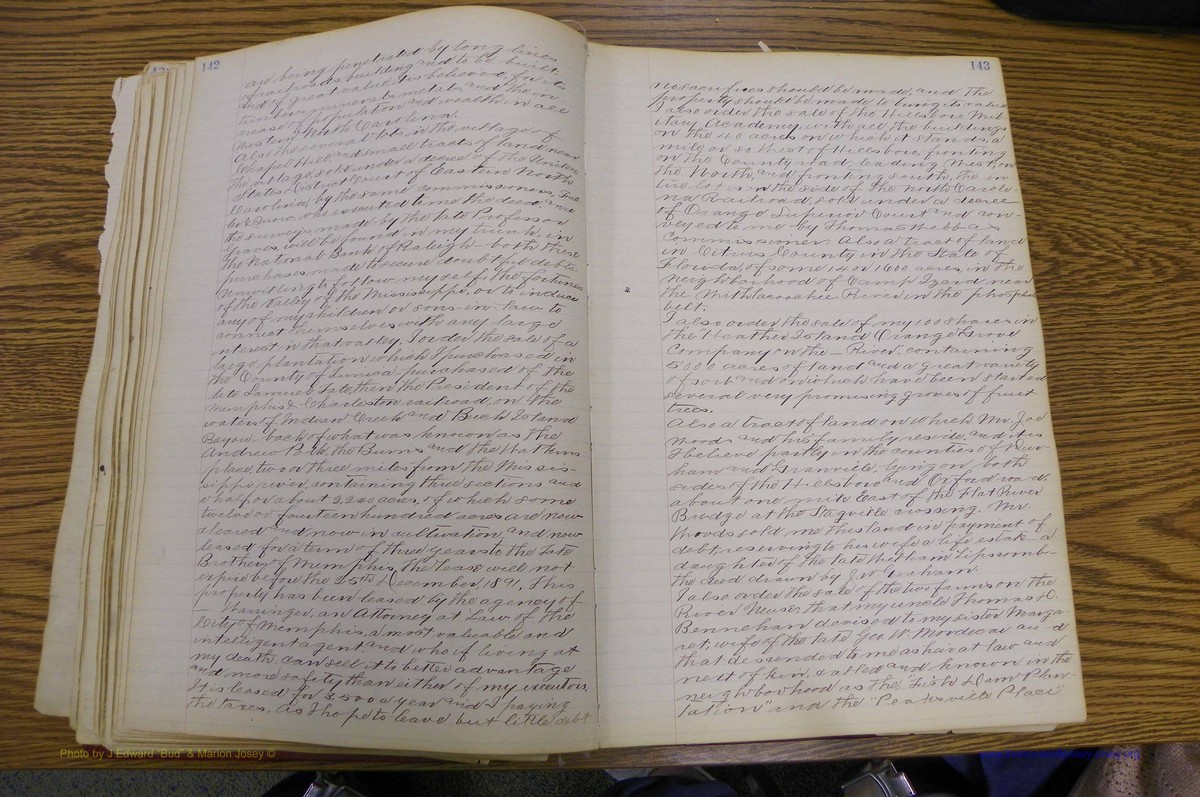 142
are being penetrated by long lines
of railroads building and to be built,
and of great value, its believed, for its
timber, minerals, metals, and the in
crease of population and wealth in all
Western North Carolina.
Also the several lots in the village of
Chapel Hill and small tracts of land near
the village sold under a decree of the United
States District Court of Eastern North
Carolina, by the same commissioners
who executed to me the deed, and
the surveys made by the late Professor
Graves will be found in my trunk, in
the National Bank of Raleigh - both these
purchases made to secure doubtful debts.
Unwilling to follow myself the fortunes
of the Valley of the Mississippi, or to induce
any of my children or sons-in-law to
connect themselves with any large
interest in that valley, I order the sale of a
large plantation which I purchased in
the County of Tunica - purchased of the
late Samuel Tate then the President of the
Memphis & Charleston railroad, on the
waters of Indian Creek and Buck Island
Bayou - back of what was known as the
Andrew Polk, the Burns and the Watkins
place, two or three miles from the Missis-
sippi river, containing three sections and
a half, or about 2240 acres, of which some
twelve or fourteen hundred acres are now
cleared and now in cultivation, and now
leased for a term of three years to the Tate
Brothers of Memphis, the lease will not
expire before the 25th December 1891, this
property has been leased by the agency of
— an Attorney at Law of the
City of Memphis, a most valuable and
intelligent agent and who if living at
my death, can sell it to better advantage
and more safety than either of my executors,
It is leased for a year and I paying
the taxes, as I hope to leave but little debt
143
no sacrifices should be made, and the
property should be made to bring its value
I also order the sale of the Hillsboro Mil-
itary Academy, with all the buildings
on the 40 acres on which it stands, a
mile or so West of Hillsboro, fronting
on the County road, leading West, on
the North, and fronting south, the en
tire lot is on the side of the North Caroli-
na Railroad, sold under a decree
of Orange Superior Court and con-
veyed to me by Thomas Webb as
Commissioner. Also a tract of land
in Citrus County in the State of
Florida, of some 14 or 1600 acres, in the
neighborhood of Camp Izard near
the Withlacoochee River in the phosphate
belt.
I also order the sale of my 100 shares in
the "Heather Island Orange Grove
Company on the — River, containing
5000 acres of land and a great variety
of soil and on which have been started
several very promising groves of fruit
trees.
Also a tract of land on which Mr. Joe
Woods and his family reside, and it is
I believe partly in the counties of Dur-
ham and Granville, lying on both
sides of the Hillsboro and Oxford road,
about one mile East of the Flat River
Bridge at the Stagville crossing. Mr.
Woods sold me this land in payment of
debt, reserving to his wife a life estate - a
daughter of the late William Lipscomb -
the deed drawn by J. W. Graham.
I also order the sale of the two farms on the
River Neuse, that my uncle Thomas D.
Bennehan devised to my sister Marga-
ret, wife of the late Geo W. Mordecai and
that descended to me as heir at law and
next of kin, called and known in the
neighborhood as the "Fish Dam Plan-
tation" and the Place
Photo by J Edward "Bud" & Marion Josey ©